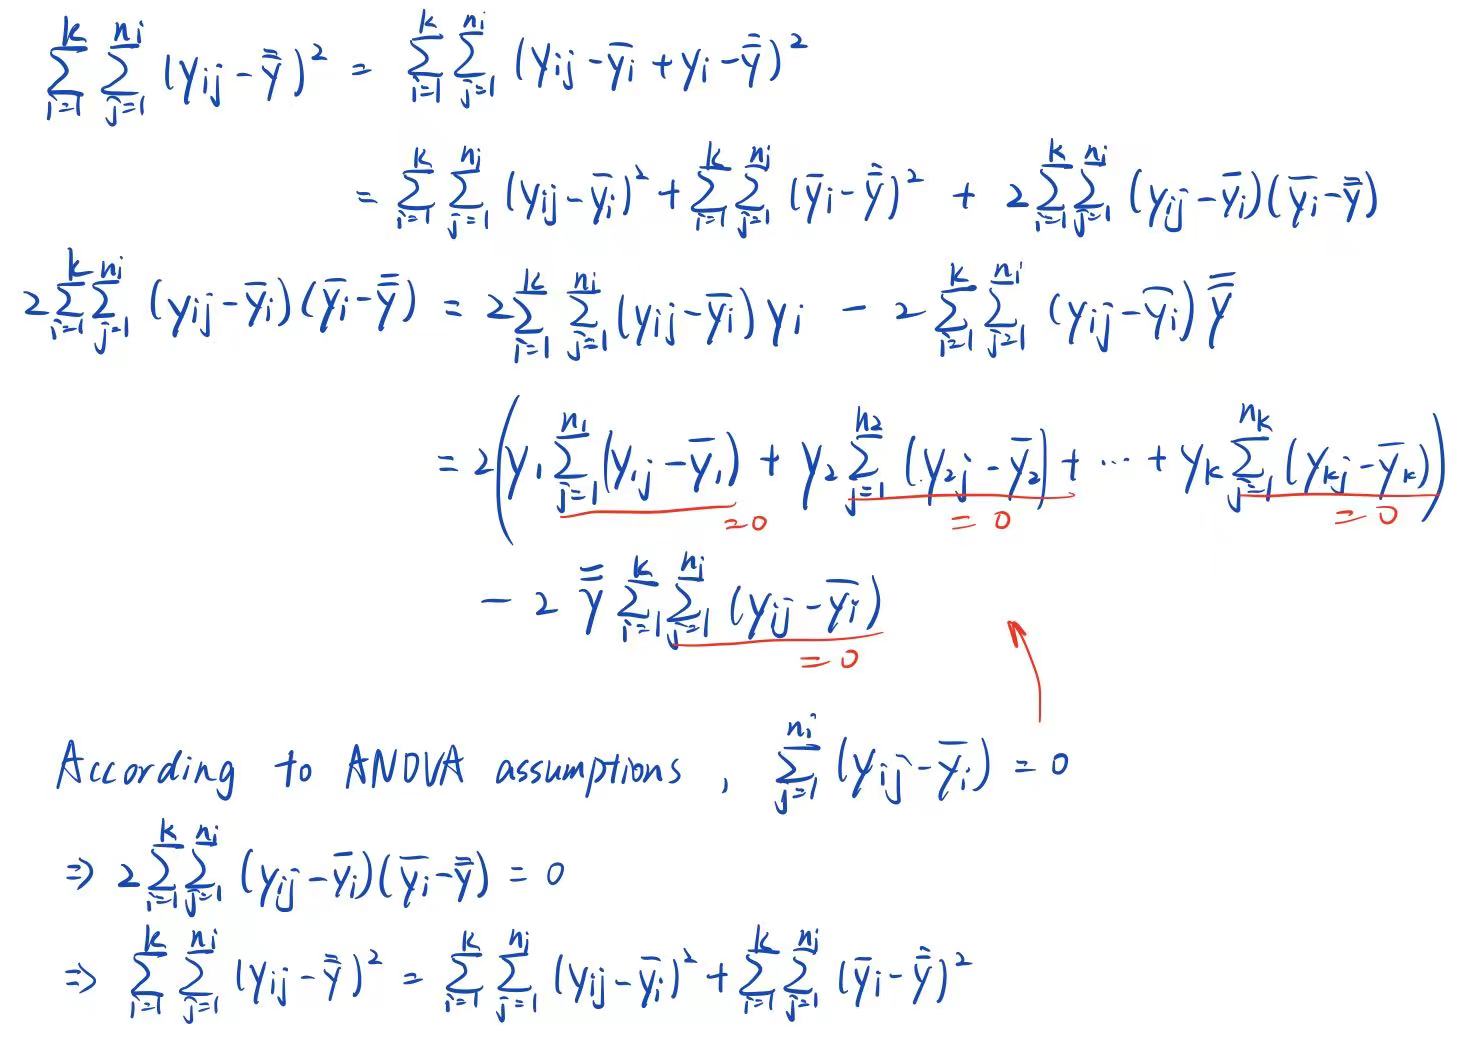 $\sum_{i=1}^{k} \sum_{j=1}^{n_i} (y_{ij} - \bar{\bar{y}})^2 = \sum_{i=1}^{k} \sum_{j=1}^{n_i} (y_{ij} - \bar{y_i} + y_i - \bar{\bar{y}})^2$
$= \sum_{i=1}^{k} \sum_{j=1}^{n_i} (y_{ij} - \bar{y_i})^2 + \sum_{i=1}^{k} \sum_{j=1}^{n_i} (\bar{y}_i - \bar{\bar{y}})^2 + 2 \sum_{i=1}^{k} \sum_{j=1}^{n_i} (y_{ij} - \bar{y_i})(\bar{y_i} - \bar{\bar{y}})$
$2 \sum_{i=1}^{k} \sum_{j=1}^{n_i} (y_{ij} - \bar{y_i})(\bar{y_i} - \bar{\bar{y}}) = 2 \sum_{i=1}^{k} \sum_{j=1}^{n_i} (y_{ij} - \bar{y_i}) y_i - 2 \sum_{i=1}^{k} \sum_{j=1}^{n_i} (y_{ij} - \bar{y_i}) \bar{\bar{y}}$
$= 2 \left( y_1 \sum_{j=1}^{n_1} (y_{1j} - \bar{y_1}) + y_2 \sum_{j=1}^{n_2} (y_{2j} - \bar{y_2}) + \cdots + y_k \sum_{j=1}^{n_k} (y_{kj} - \bar{y_k}) \right)$
$= 0$ $= 0$ $= 0$
$- 2 \bar{\bar{y}} \sum_{i=1}^{k} \sum_{j=1}^{n_i} (y_{ij} - \bar{y_i})$
$= 0$
According to ANOVA assumptions , $\sum_{j=1}^{n_i} (y_{ij} - \bar{y_i}) = 0$
$\Rightarrow 2 \sum_{i=1}^{k} \sum_{j=1}^{n_i} (y_{ij} - \bar{y_i})(\bar{y_i} - \bar{\bar{y}}) = 0$
$\Rightarrow \sum_{i=1}^{k} \sum_{j=1}^{n_i} (y_{ij} - \bar{\bar{y}})^2 = \sum_{i=1}^{k} \sum_{j=1}^{n_i} (y_{ij} - \bar{y_i})^2 + \sum_{i=1}^{k} \sum_{j=1}^{n_i} (\bar{y}_i - \bar{\bar{y}})^2$